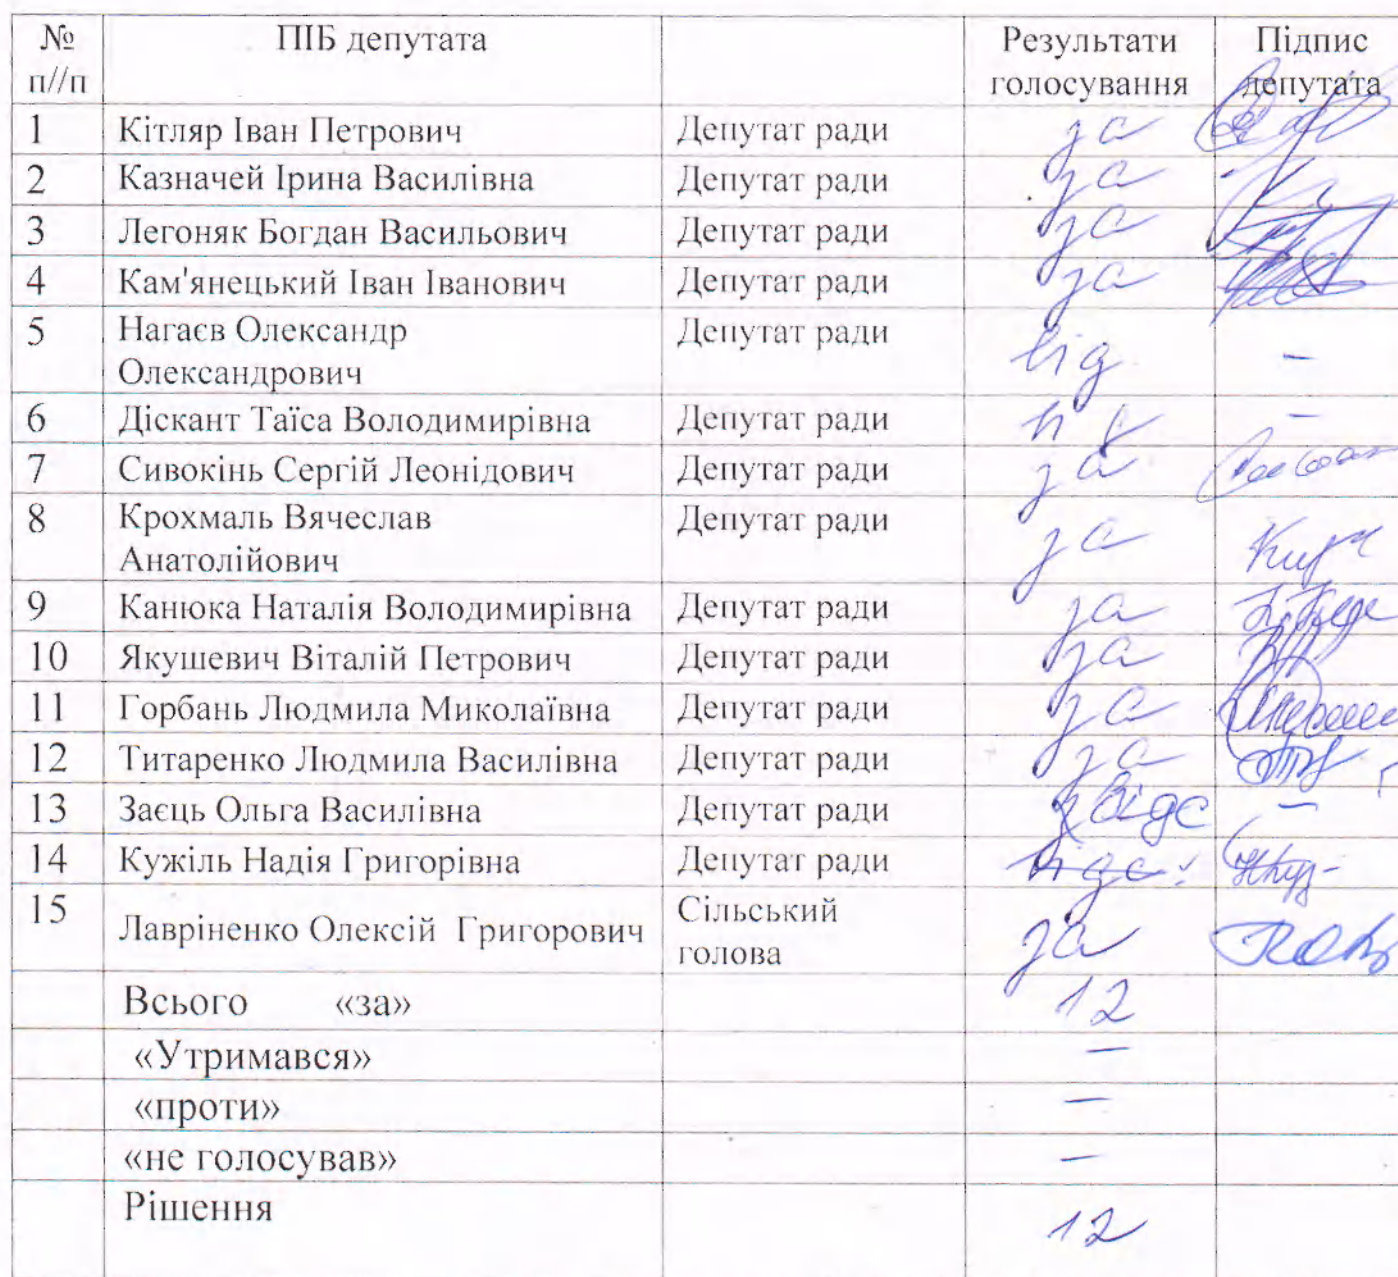 № п//п ПІБ депутата Результати голосування Підпис депутата
1 Кітляр Іван Петрович Депутат ради за
2 Казначей Ірина Василівна Депутат ради за
3 Легоняк Богдан Васильович Депутат ради за
4 Кам'янецький Іван Іванович Депутат ради за
5 Нагаєв Олександр Олександрович Депутат ради від –
6 Діскант Таїса Володимирівна Депутат ради –
7 Сивокінь Сергій Леонідович Депутат ради за
8 Крохмаль Вячеслав Анатолійович Депутат ради за
9 Канюка Наталія Володимирівна Депутат ради за
10 Якушевич Віталій Петрович Депутат ради за
11 Горбань Людмила Миколаївна Депутат ради за
12 Титаренко Людмила Василівна Депутат ради за
13 Заєць Ольга Василівна Депутат ради –
14 Кужіль Надія Григорівна Депутат ради
15 Лавріненко Олексій Григорович Сільський голова за
Всього «за» 12
«Утримався» –
«проти» –
«не голосував» –
Рішення 12